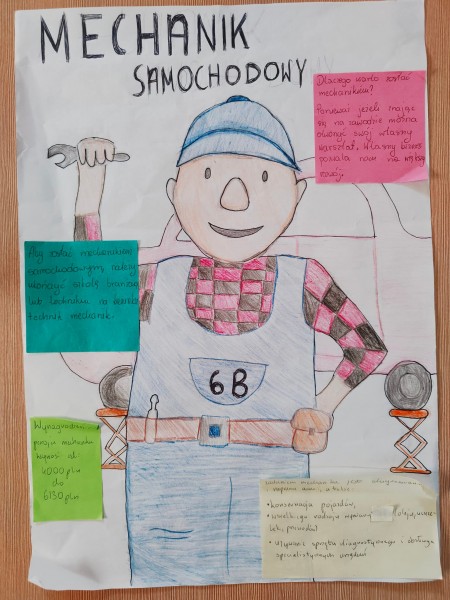 MECHANIK
SAMOCHODOWY
Dlaczego warto zostać
mechanikiem?
Ponieważ jeżeli znając
się na zawodzie można
otworzyć swój własny
warsztat. Własny biznes
pozwala nam na większy
rozwój.
Aby zostać mechanikiem
samochodowym, należy
ukończyć szkołę branżo
lub technikum na
technik mechanik.
6B
Wynagrodzenie
mechanika
wynosi od
4000 pln
do
6130 pln
naprawa aut, a także:
• konserwacja pojazdów,
• wszelkiego rodzaju wymiany
• używanie sprzętu diagnostycznego i obsługa
specjalistycznych urządzeń